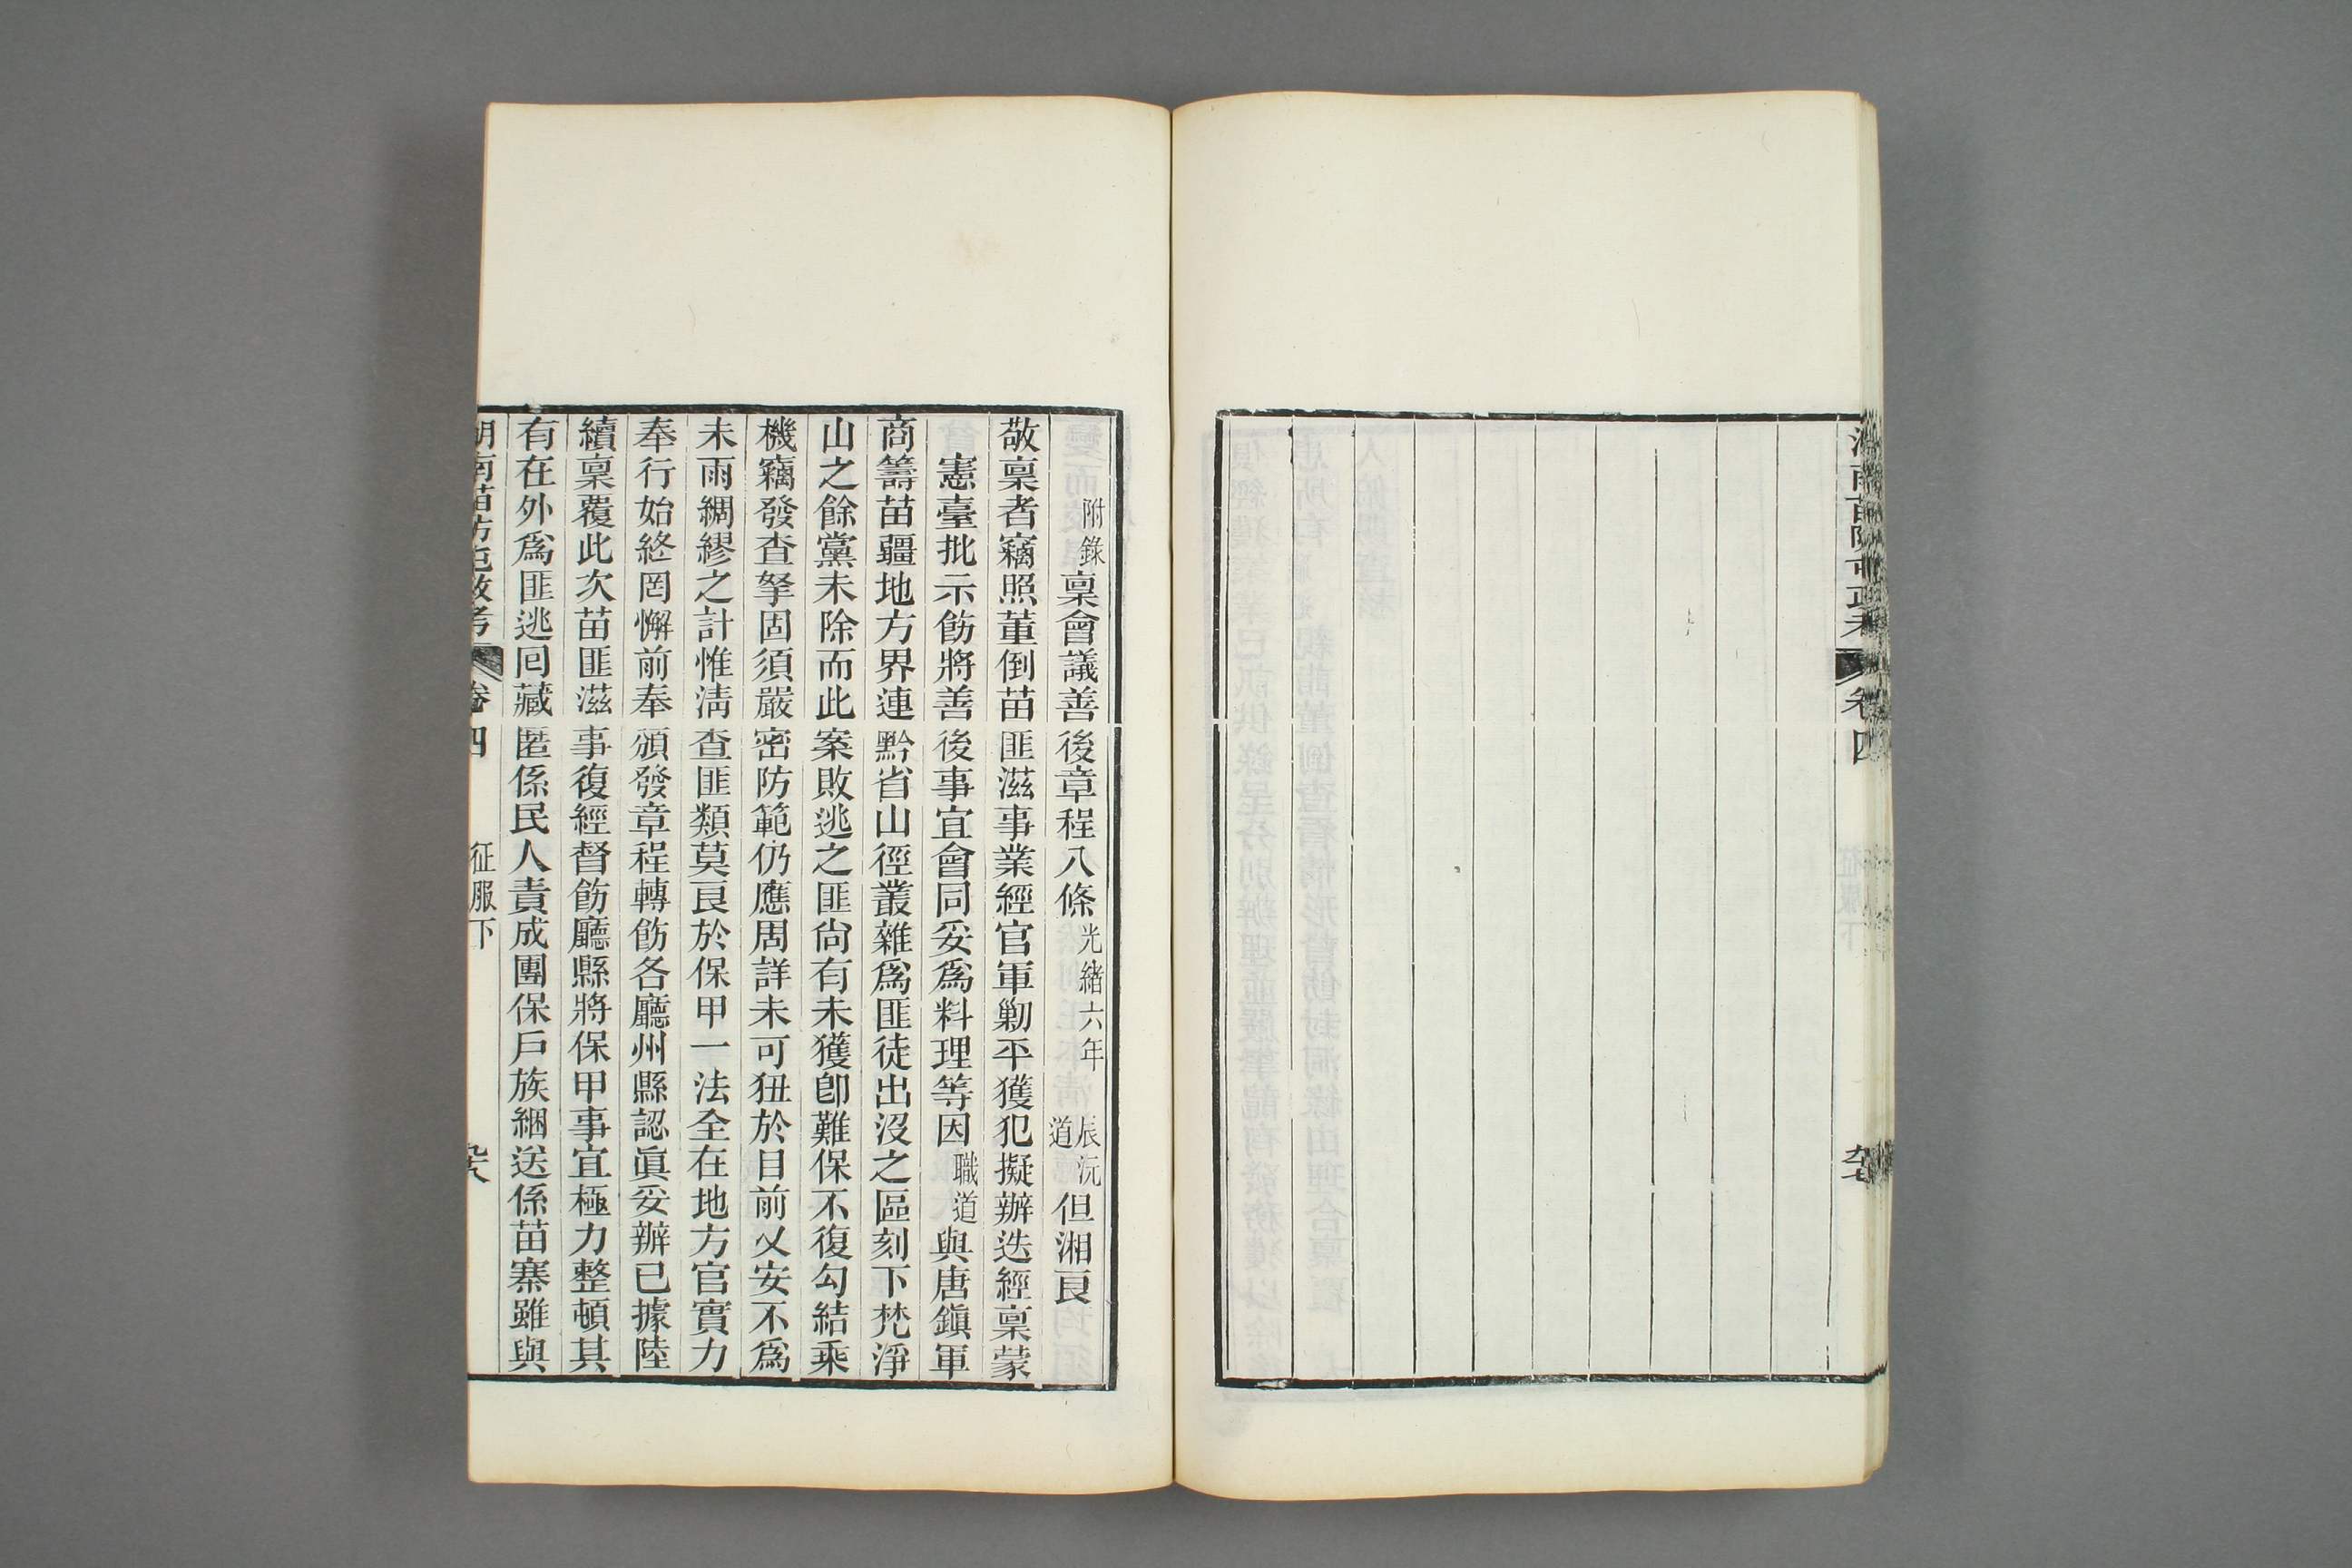 湖南苗防屯政考 卷四
附錄稟會議善後章程八條光緒六年 辰沅道但湘良
敬稟者竊照董倒苗匪滋事業經官軍勦平獲犯擬辦迭經稟蒙
憲臺批示飭將善後事宜會同妥爲料理等因職道與唐鎭軍
商籌苗疆地方界連黔省山徑叢雜爲匪徒出沒之區刻下梵淨
山之餘黨未除而此案敗逃之匪尙有未獲卽難保不復勾結乘
機竊發查拏固須嚴密防範仍應周詳未可狃於目前乂安不爲
未雨綢繆之計惟淸查匪類莫良於保甲一法全在地方官實力
奉行始終罔懈前奉頒發章程轉飭各廳州縣認眞妥辦已據陸
續稟覆此次苗匪滋事復經督飭廳縣將保甲事宜極力整頓其
有在外爲匪逃回藏匿係民人責成團保戶族綑送係苗寨雖與
湖南苗防屯政考 卷四 征服下